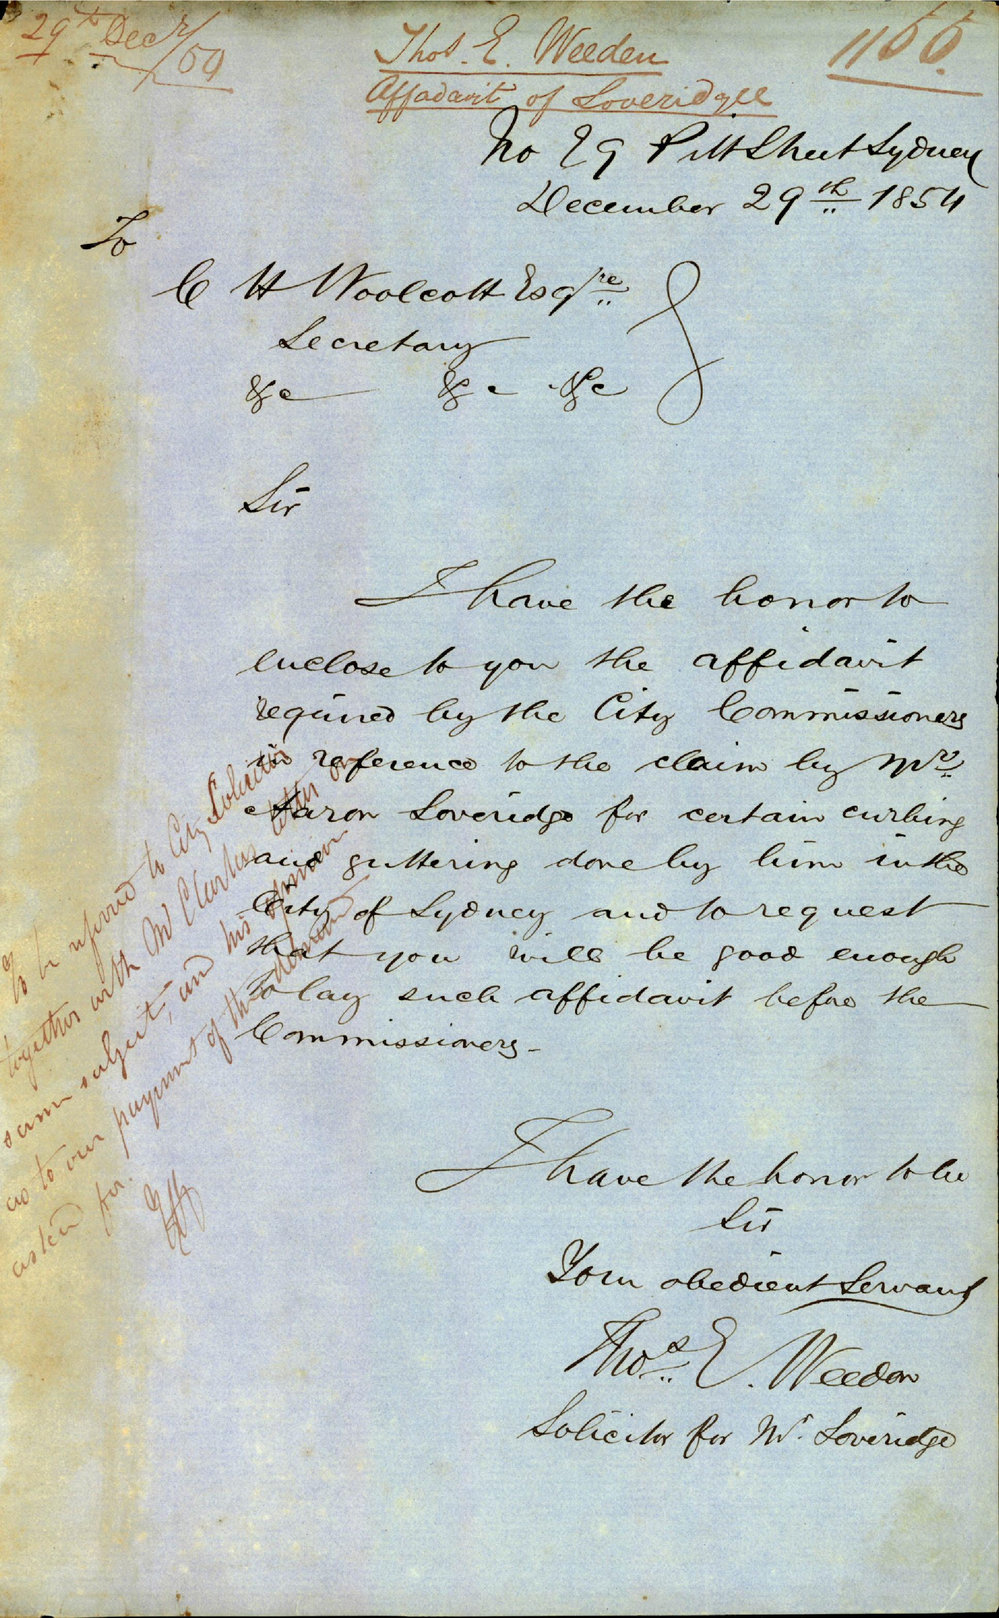 29th Decr/54
Thos. E. Weeden
1155.
Affadavit of Loveridgee
No 29 Pitt Street Sydney
December 29th 1854
To
C H Woolcott Esqre
Secretary
&c &c &c
Sir
I have the honor to
enclose to you the affidavit
required by the City Commissioners
in reference to the claim by Mr
Aaron Loveridge for certain curbing
and guttering done by him in the
City of Sydney and to request
that you will be good enough
to lay such affidavit before the
Commissioners -
I have the honor to be
Sir
Your obedient Servant
Thos E. Weedon
Solicitor for Mr. Loveridge
To be referred to City Solicitor
together with Mr letter on
same subject, and his opinion
as to our payment of the
asked for.